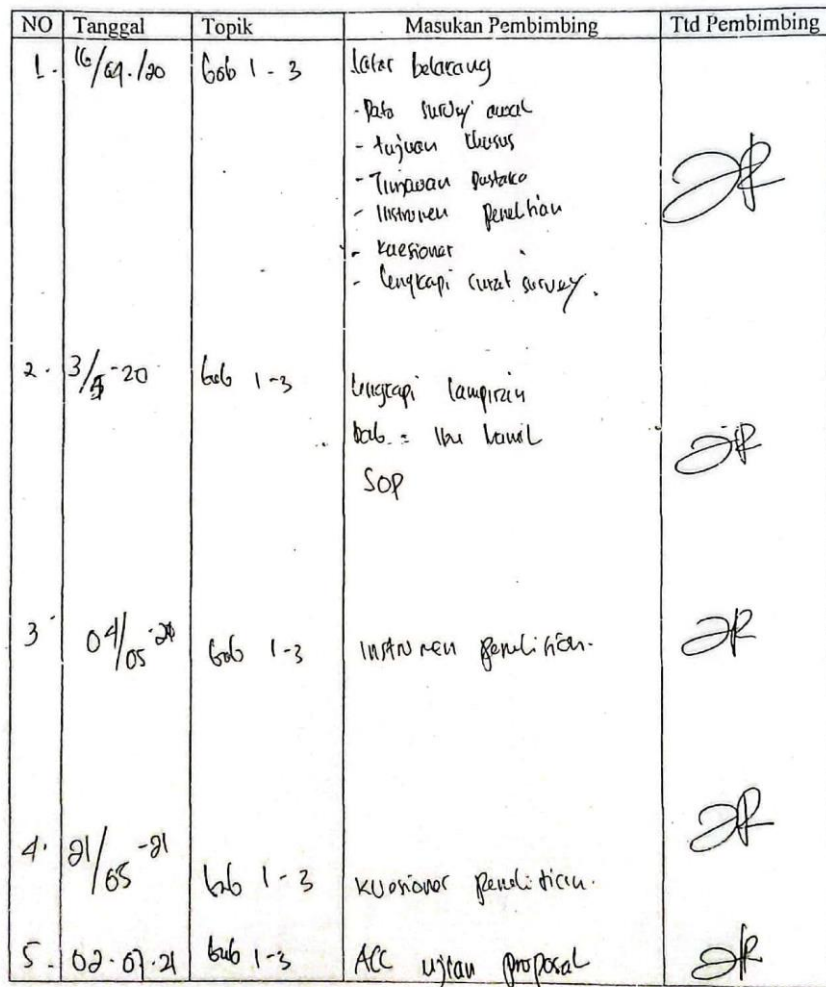 NO Tanggal Topik Masukan Pembimbing Ttd Pembimbing
1. 16/09.120 bab 1 - 3 latar belakang
- Data survey awal
- tujuan khusus
- Tinjauan Pustaka
- Instrumen Penelitian
- kuesioner
- lengkapi surat survey.
2. 3/5-20 bab 1-3 lengkapi lampiran
bab = Ibu hamil
SOP
3 04/05 bab 1-3 Instrumen penelitian.
4. 21/05-21 bab 1-3 kuesioner penelitian.
5. 02.07.21 bab 1-3 ACC ujian proposal